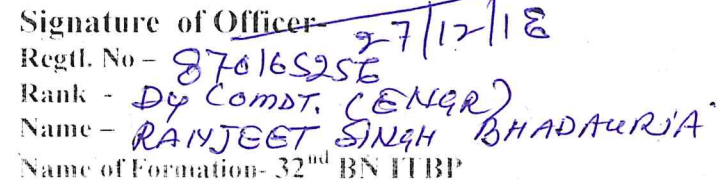 Signature of Officer- 27/12/18
Regtl. No – 870165256
Rank - Dy COMDT. (ENGR)
Name – RANJEET SINGH BHADAURIA
Name of Formation- 32nd BN ITBP